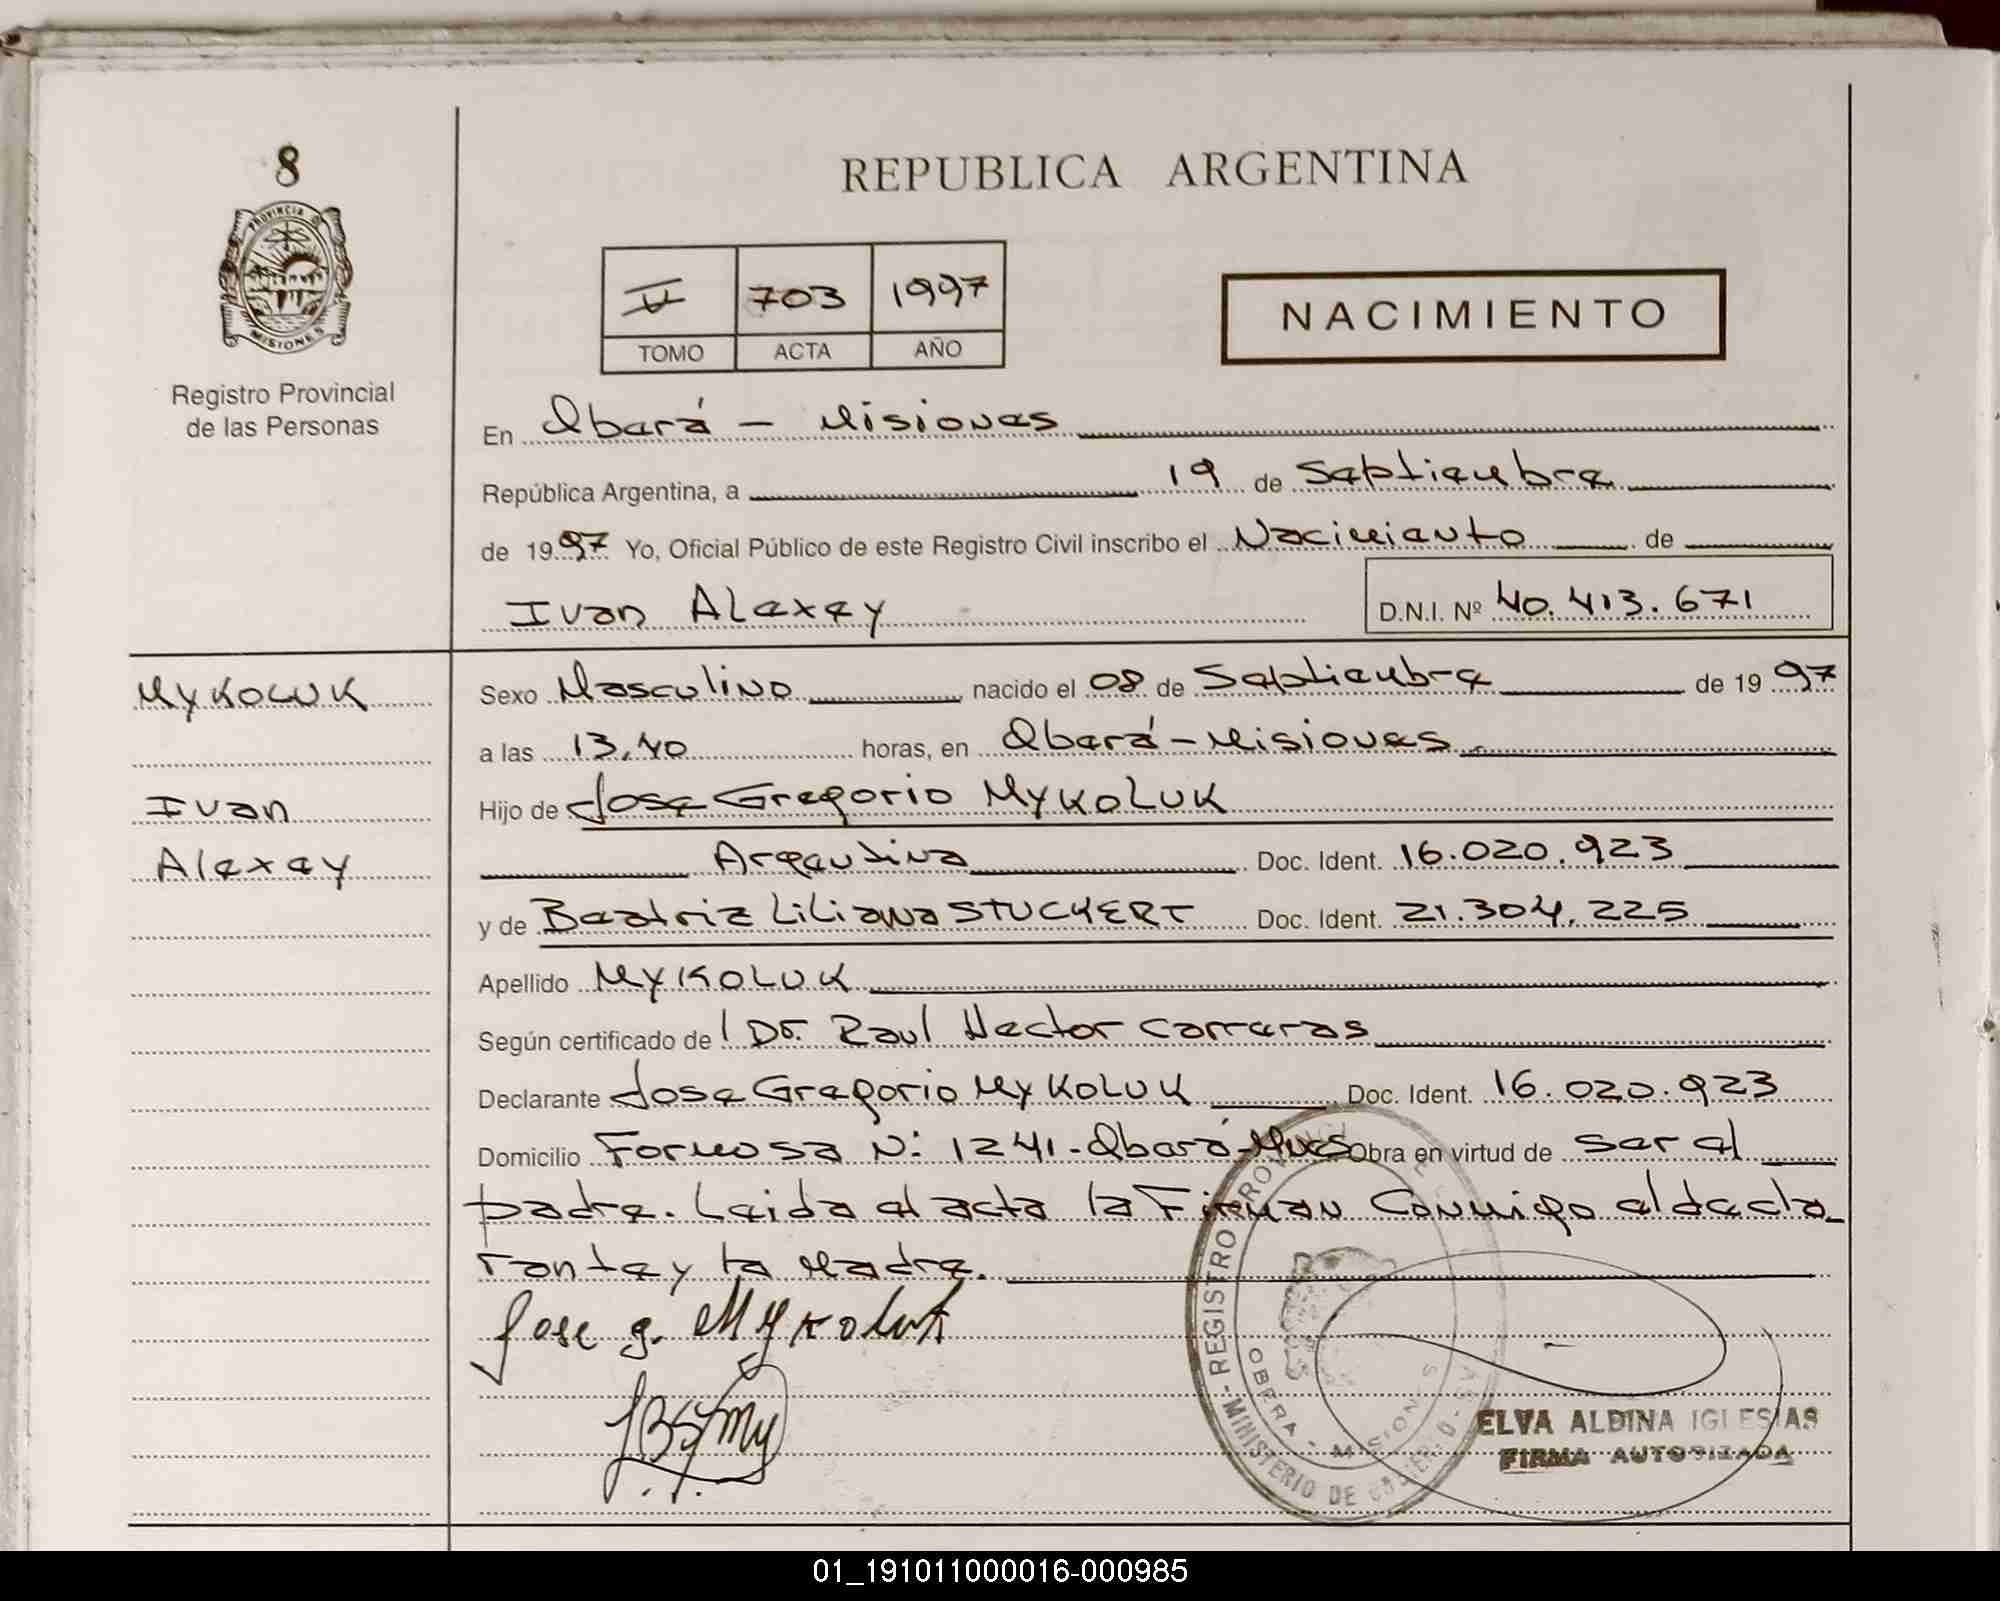 8
PROVINCIA D
MISIONES
Registro Provincial
de las Personas
REPUBLICA ARGENTINA
V 703 1997
TOMO ACTA AÑO
NACIMIENTO
En Oberá - Misiones
República Argentina, a 19 de Septiembre
de 1997 Yo, Oficial Público de este Registro Civil inscribo el Nacimiento de
Ivan Alexey D.N.I. Nº 40.413.671
MYKOLUK
Ivan
Alexey
Sexo Masculino nacido el 08 de Septiembre de 1997
a las 13,40 horas, en Oberá - Misiones
Hijo de Jose Gregorio MYKOLUK
Argentina Doc. Ident. 16.020.923
y de Beatriz Liliana STUCKERT Doc. Ident. 21.304.225
Apellido MYKOLUK
Según certificado de l Dr. Raul Hector Carreras
Declarante Jose Gregorio MYKOLUK Doc. Ident. 16.020.923
Domicilio Formosa N: 1241 - Oberá - Mnes Obra en virtud de ser el
padre. Leida el acta la Firman Conmigo el decla_
rante y la Madre.
Jose G. Mykoluk
REGISTRO PROVINCIAL
MINISTERIO DE GOBIERNO
OBERA - MISIONES
ELVA ALDINA IGLESIAS
FIRMA AUTORIZADA
01_191011000016-000985